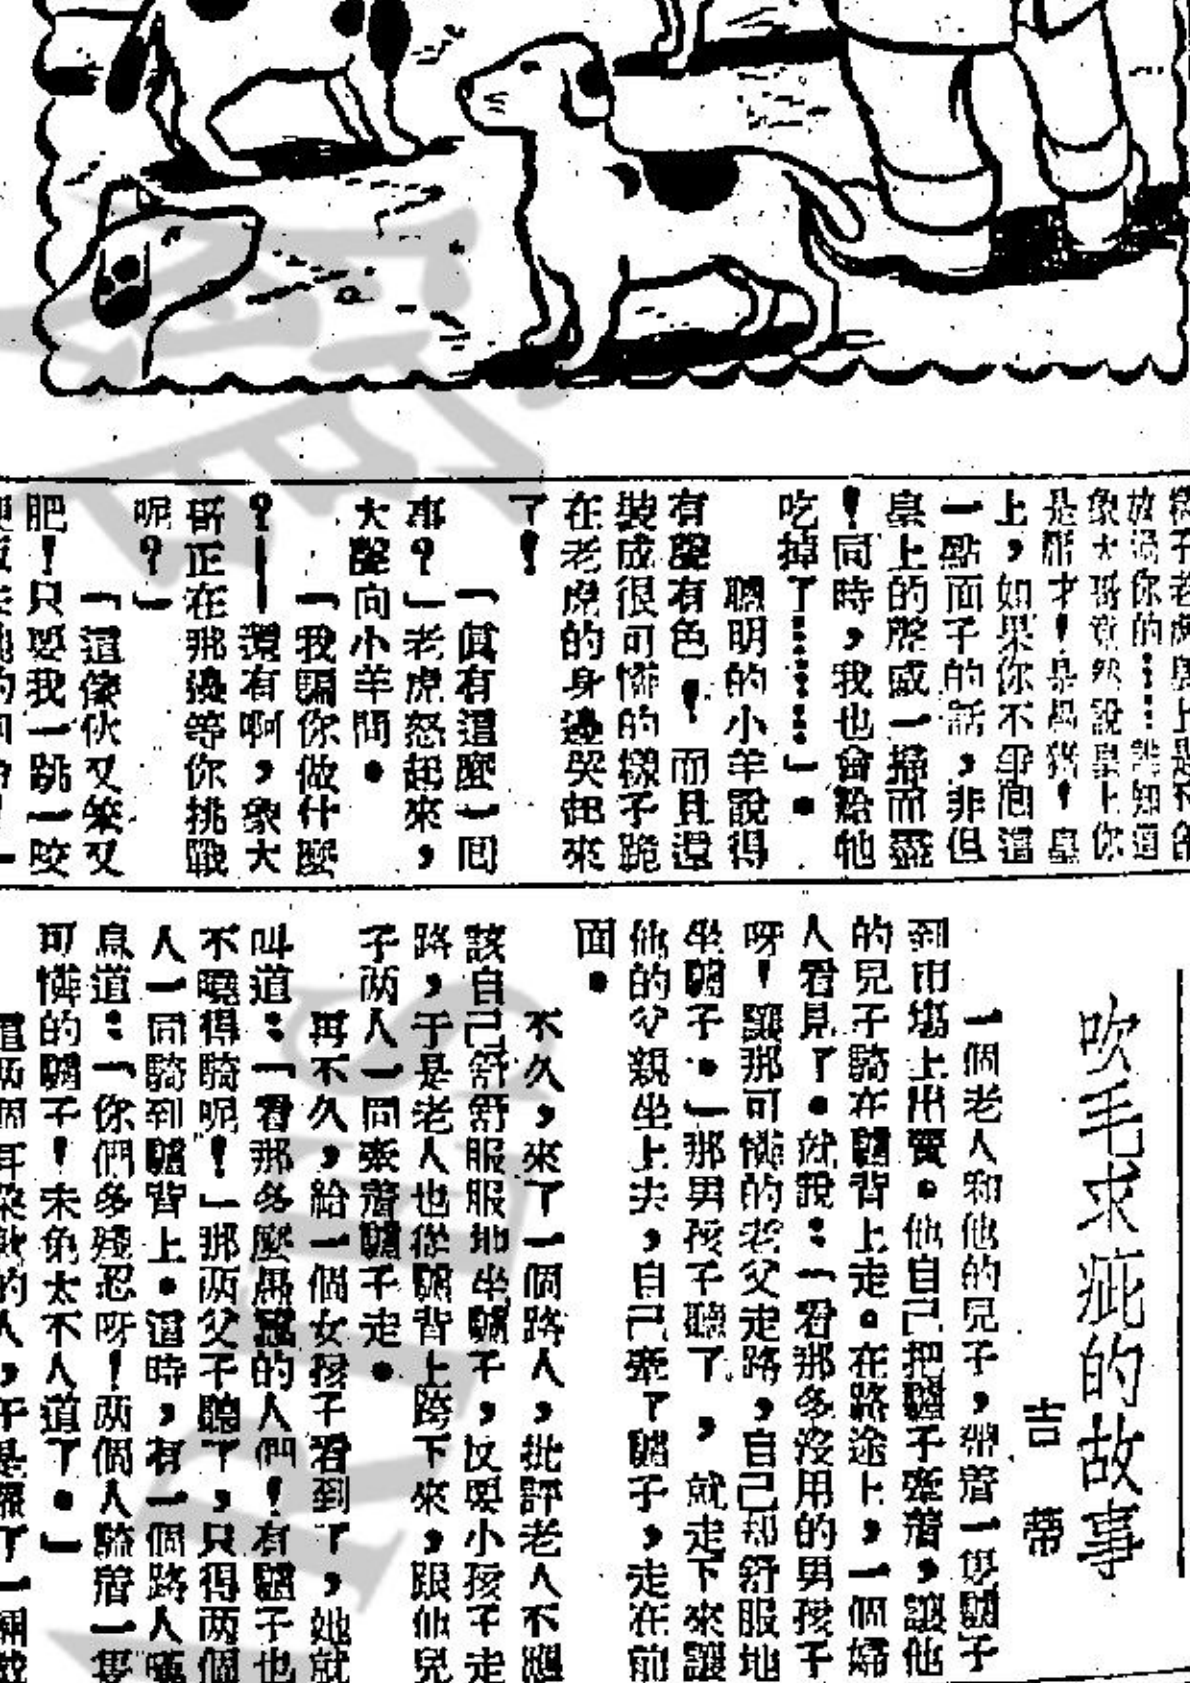 上,如果你不爭回這
一點面子的話,非但
臯上的虎威一掃而盡
!同時,我也會給牠
吃掉了⋯⋯⋯」.
聰明的小羊說得
有聲有色!而且還
裝成很可憐的樣子跪
在老虎的身邊哭起來
了!
「眞有這麼一囘
事?」老虎怒起來,
大聲向小羊問.
「我騙你做什麼
?—還有啊,象大
哥正在那邊等你挑戰
呢?」
「這傢伙又笨又
肥!只要我一跳一咬
吹毛求疵的故事
吉蒂
一個老人和他的兒子,帶着一隻驢子
到市塲上出賣.他自己把驢子牽着,讓他
的兒子騎在驢背上走.在路途上,一個婦
人看見了.就說:「看那多沒用的男孩子
呀!讓那可憐的老父走路,自己却舒服地
坐驢子.」那男孩子聽了,就走下來讓
他的父親坐上去,自己牽了驢子,走在前
面.
不久,來了一個路人,批評老人不應
該自己舒舒服服地坐驢子,反要小孩子走
路,于是老人也從驢背上跨下來,跟他兒
子两人一同牽着驢子走.
再不久,給一個女孩子看到了,她就
叫道:「看那多麼愚蠢的人們!有驢子也
不曉得騎呢!」那两父子聽了,只得两個
人一同騎到驢背上.這時,有一個路人嘆
息道:「你們多殘忍呀!两個人騎着一隻
可憐的驢子!未免太不人道了.」